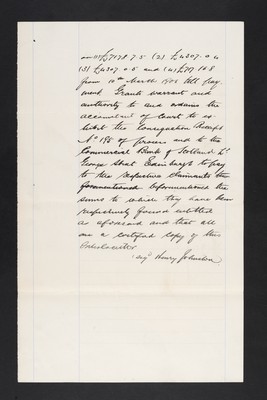 on (1) £7178.7.5 (2) £4307.0.4
(3) £4307.0.5 and (4) £717.16.8
from 10th March 1906 till pay
ment Grants warrant and
authority to and ordains the
accountant of Court to ex
hibit the Consignation Receipt
No 188 of process and to the
Commercial Bank of Scotland Ld
George Street Edinburgh to pay
to the respective claimants the
forementioned beforementioned the
sums to which they have been
respectively found entitled
as aforesaid and that all
on a certified copy of this
Interlocutor
(sigd Henry Johnston